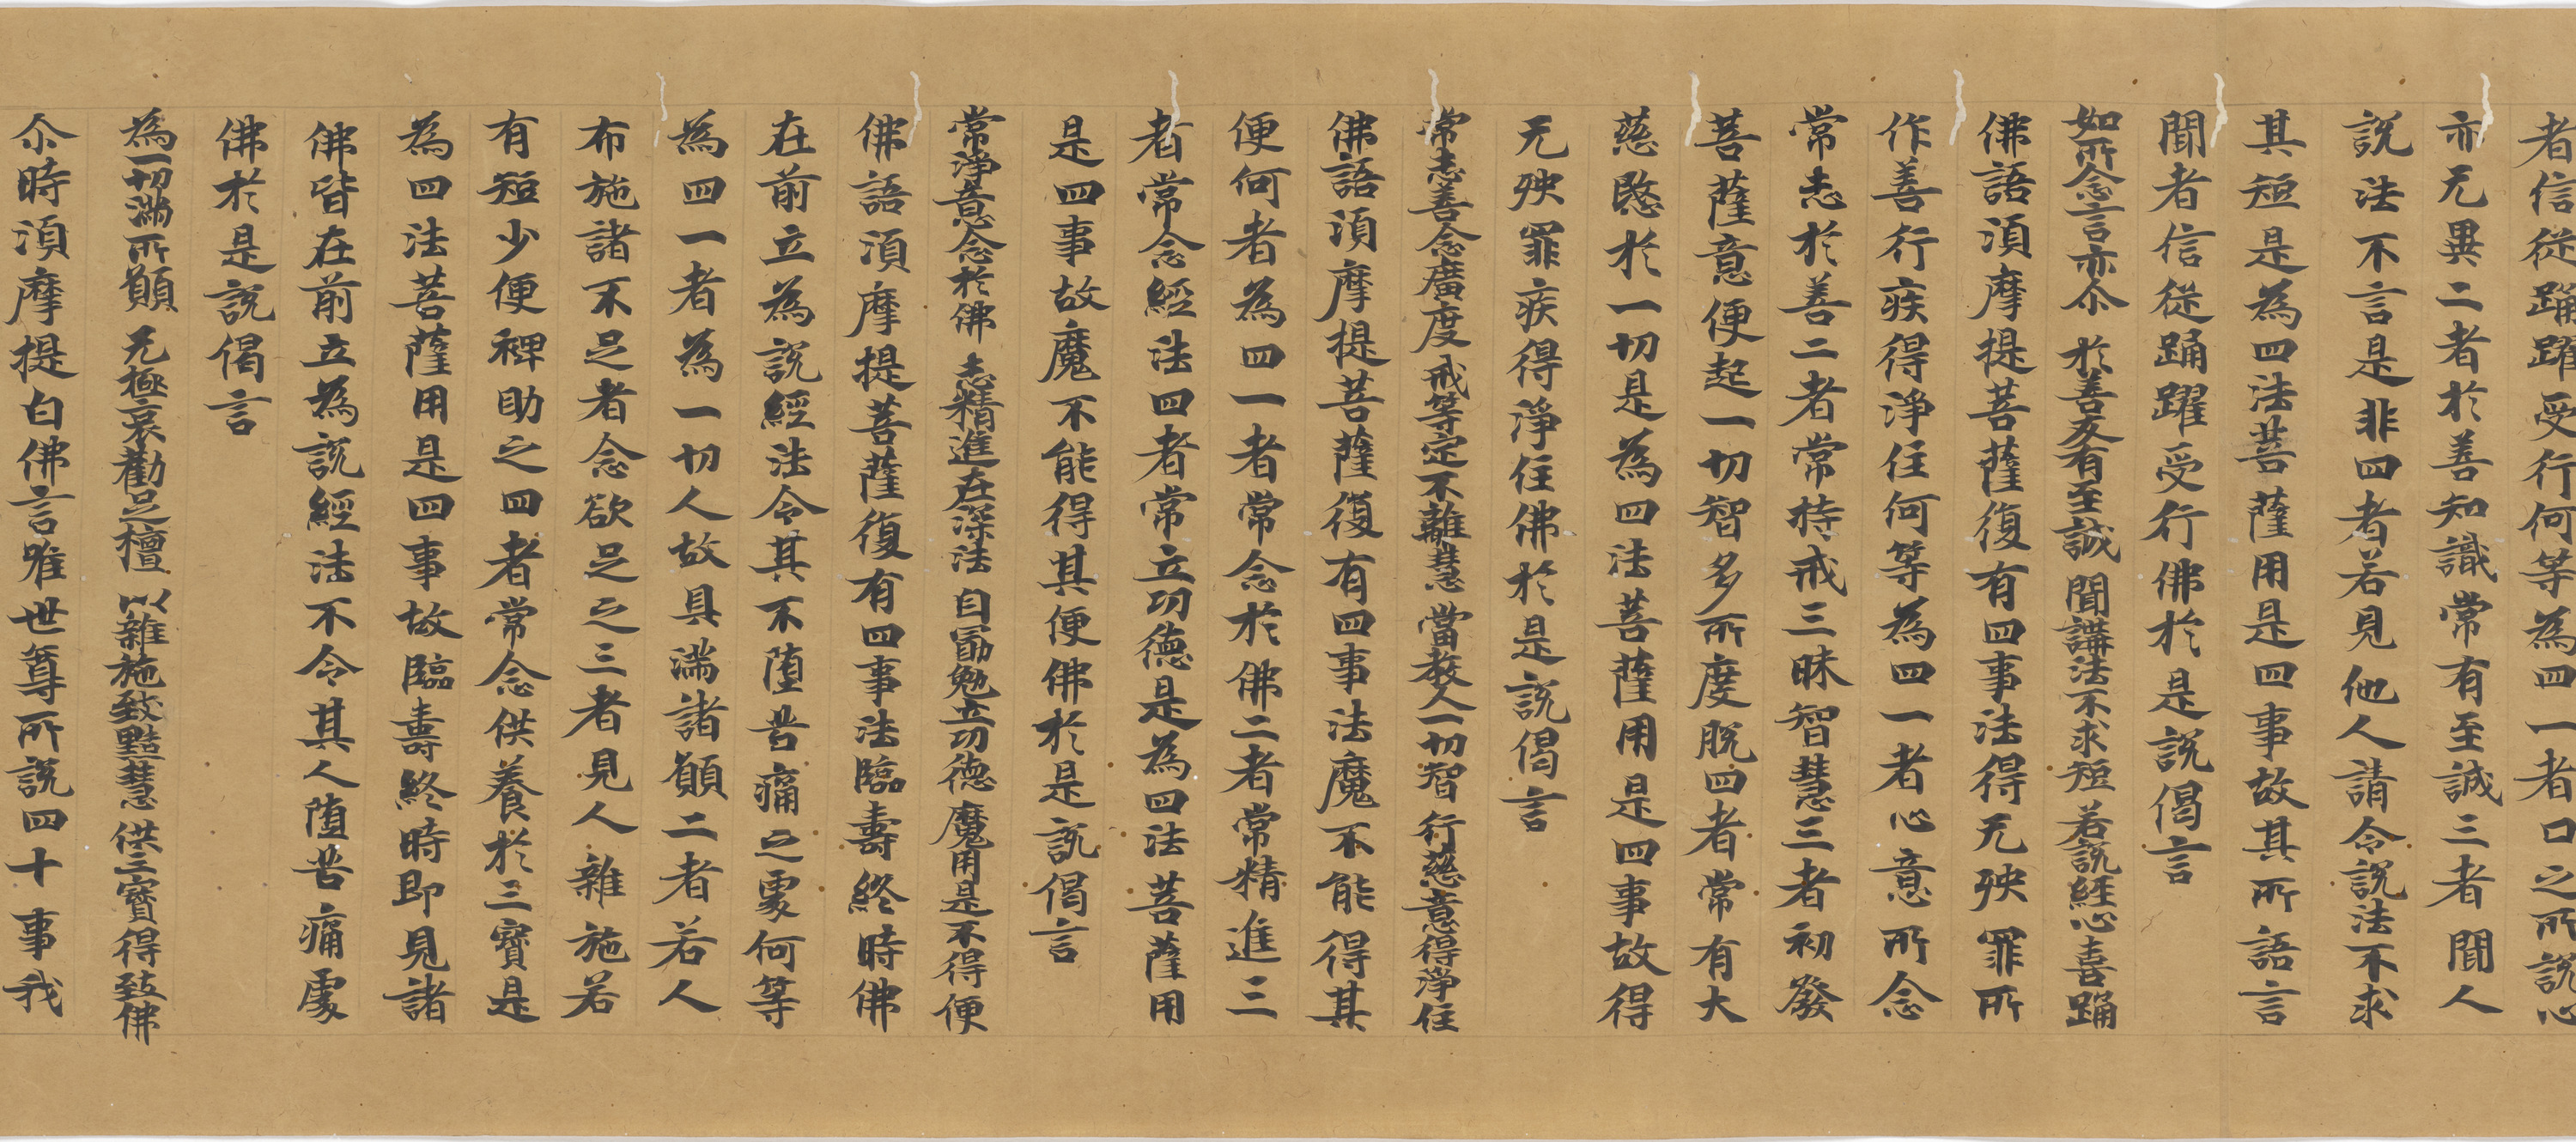 者信從踊躍受行何等為四一者口之所說心
亦无異二者於善知識常有至誠三者聞人
說法不言是非四者若見他人請令說法不求
其短是為四法菩薩用是四事故其所語言
聞者信從踊躍受行佛於是說偈言
如所念言亦尒 於善友有至誠 聞講法不求短 若說經心喜踊
佛語湏摩提菩薩復有四事法得无殃罪所
作善行疾得淨住何等為四一者心意所念
常志於善二者常持戒三昧智慧三者初發
菩薩意便起一切智多所度脫四者常有大
慈愍於一切是為四法菩薩用是四事故得
无殃罪疾得淨住佛於是說偈言
常志善念廣度 戒等定不離慧 當教人一切智 行慈意得淨住
佛語湏摩提菩薩復有四事法魔不能得其
便何者為四一者常念於佛二者常精進三
者常念經法四者常立功德是為四法菩薩用
是四事故魔不能得其便佛於是說偈言
常淨意念於佛 志精進在深法 自勗勉立功德 魔用是不得便
佛語湏摩提菩薩復有四事法臨壽終時佛
在前立為說經法令其不墮苦痛之處何等
為四一者為一切人故具滿諸願二者若人
布施諸不足者念欲足之三者見人雜施若
有短少便裨助之四者常念供養於三寶是
為四法菩薩用是四事故臨壽終時即見諸
佛皆在前立為說經法不令其人墮苦痛處
佛於是說偈言
為一切滿所願 无極哀勸足檀 以雜施致黠慧 供三寶得致佛
尒時湏摩提白佛言唯世尊所說四十事我